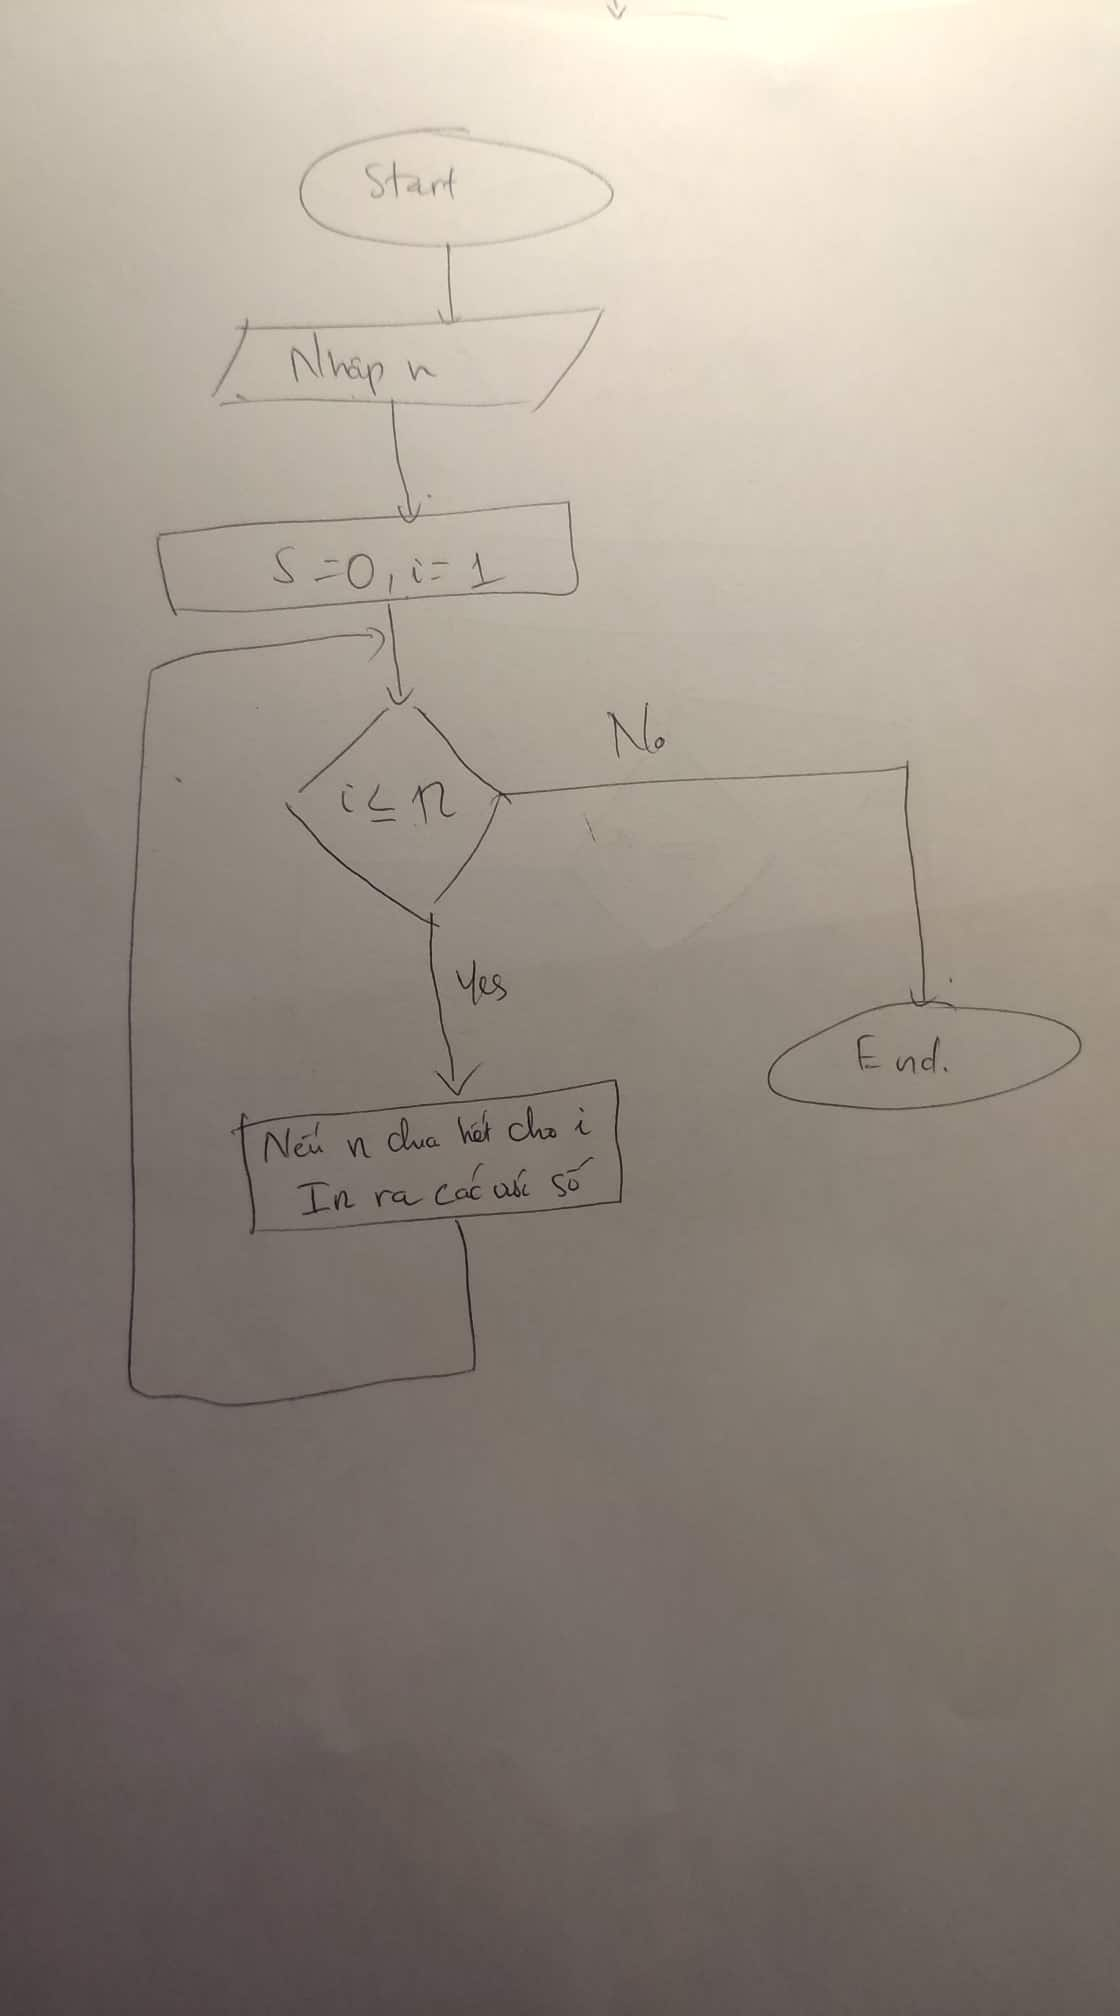 Start
Nhập n
S=0, i=1
i ≤ n
No
Yes
End.
Nếu n chia hết cho i
In ra các ước số